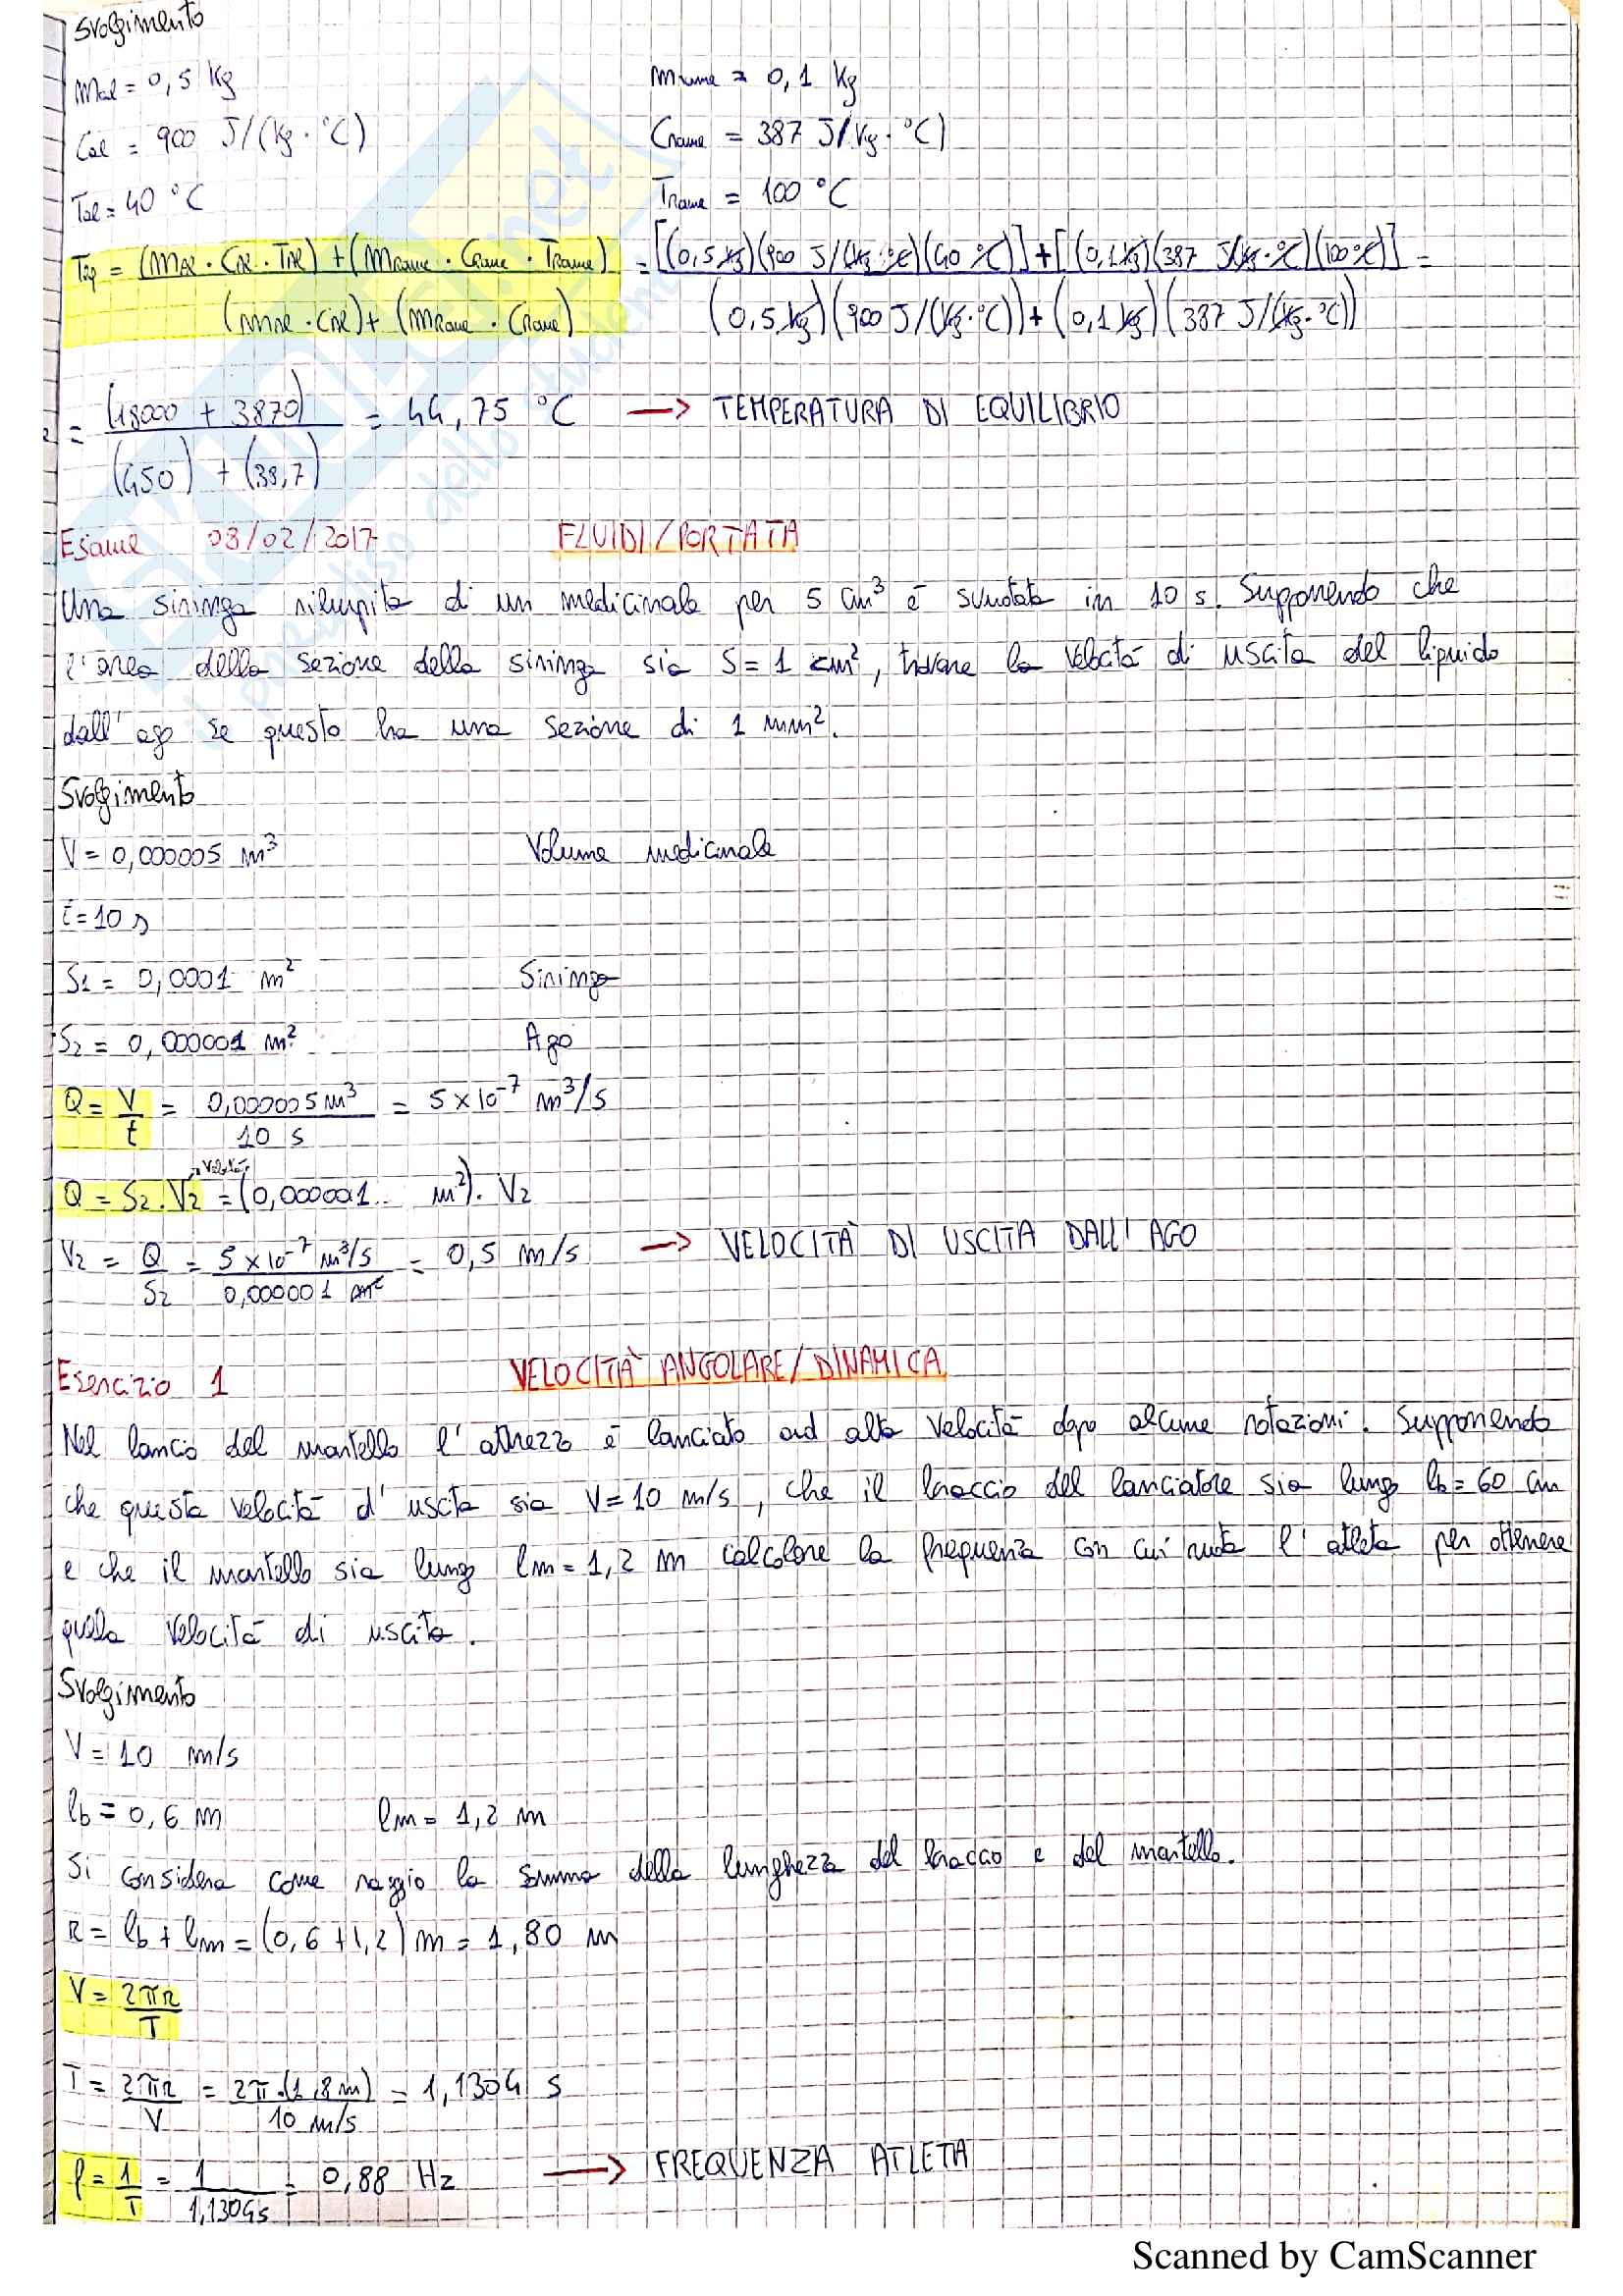 Svolgimento
mal = 0,5 Kg
mrame = 0,1 Kg
Cal = 900 J/(Kg·°C)
Crame = 387 J/(Kg·°C)
Tal = 40 °C
Trame = 100 °C
Teq = (mAl · CAl · TAl) + (mRame · CRame · TRame) / (mAl · CAl) + (mRame · CRame) = [(0,5 Kg)(900 J/(Kg·°C)(40 °C)] + [(0,1 Kg)(387 J/(Kg·°C)(100 °C)] / (0,5 Kg)(900 J/(Kg·°C)) + (0,1 Kg)(387 J/(Kg·°C)) =
= (18000 + 3870) / (450) + (38,7) = 44,75 °C → TEMPERATURA DI EQUILIBRIO
Esame 03/02/2017 FLUIDI/PORTATA
Una siringa riempita di un medicinale per 5 cm³ è svuotata in 10 s. Supponendo che
l'area della sezione della siringa sia S = 1 cm², trovare la velocità di uscita del liquido
dall'ago se questo ha una sezione di 1 mm².
Svolgimento
V = 0,000005 m³ Volume medicinale
t = 10 s
S1 = 0,0001 m² Siringa
S2 = 0,000001 m² Ago
Q = V/t = 0,000005 m³ / 10 s = 5 x 10⁻⁷ m³/s
→ Velocità
Q = S2 · V2 = (0,000001 m²) · V2
V2 = Q/S2 = 5 x 10⁻⁷ m³/s / 0,000001 m² = 0,5 m/s → VELOCITÀ DI USCITA DALL'AGO
Esercizio 1 VELOCITÀ ANGOLARE/DINAMICA
Nel lancio del martello l'attrezzo è lanciato ad alta velocità dopo alcune rotazioni. Supponendo
che questa velocità d'uscita sia V = 10 m/s, che il braccio del lanciatore sia lungo lb = 60 cm
e che il martello sia lungo lm = 1,2 m calcolare la frequenza con cui ruota l'atleta per ottenere
quella velocità di uscita.
Svolgimento
V = 10 m/s
lb = 0,6 m lm = 1,2 m
Si considera come raggio la somma della lunghezza del braccio e del martello.
R = lb + lm = (0,6 + 1,2) m = 1,80 m
V = 2πr / T
T = 2πr / V = 2π·(1,8 m) / 10 m/s = 1,1304 s
f = 1/T = 1 / 1,1304 s = 0,88 Hz → FREQUENZA ATLETA
Scanned by CamScanner